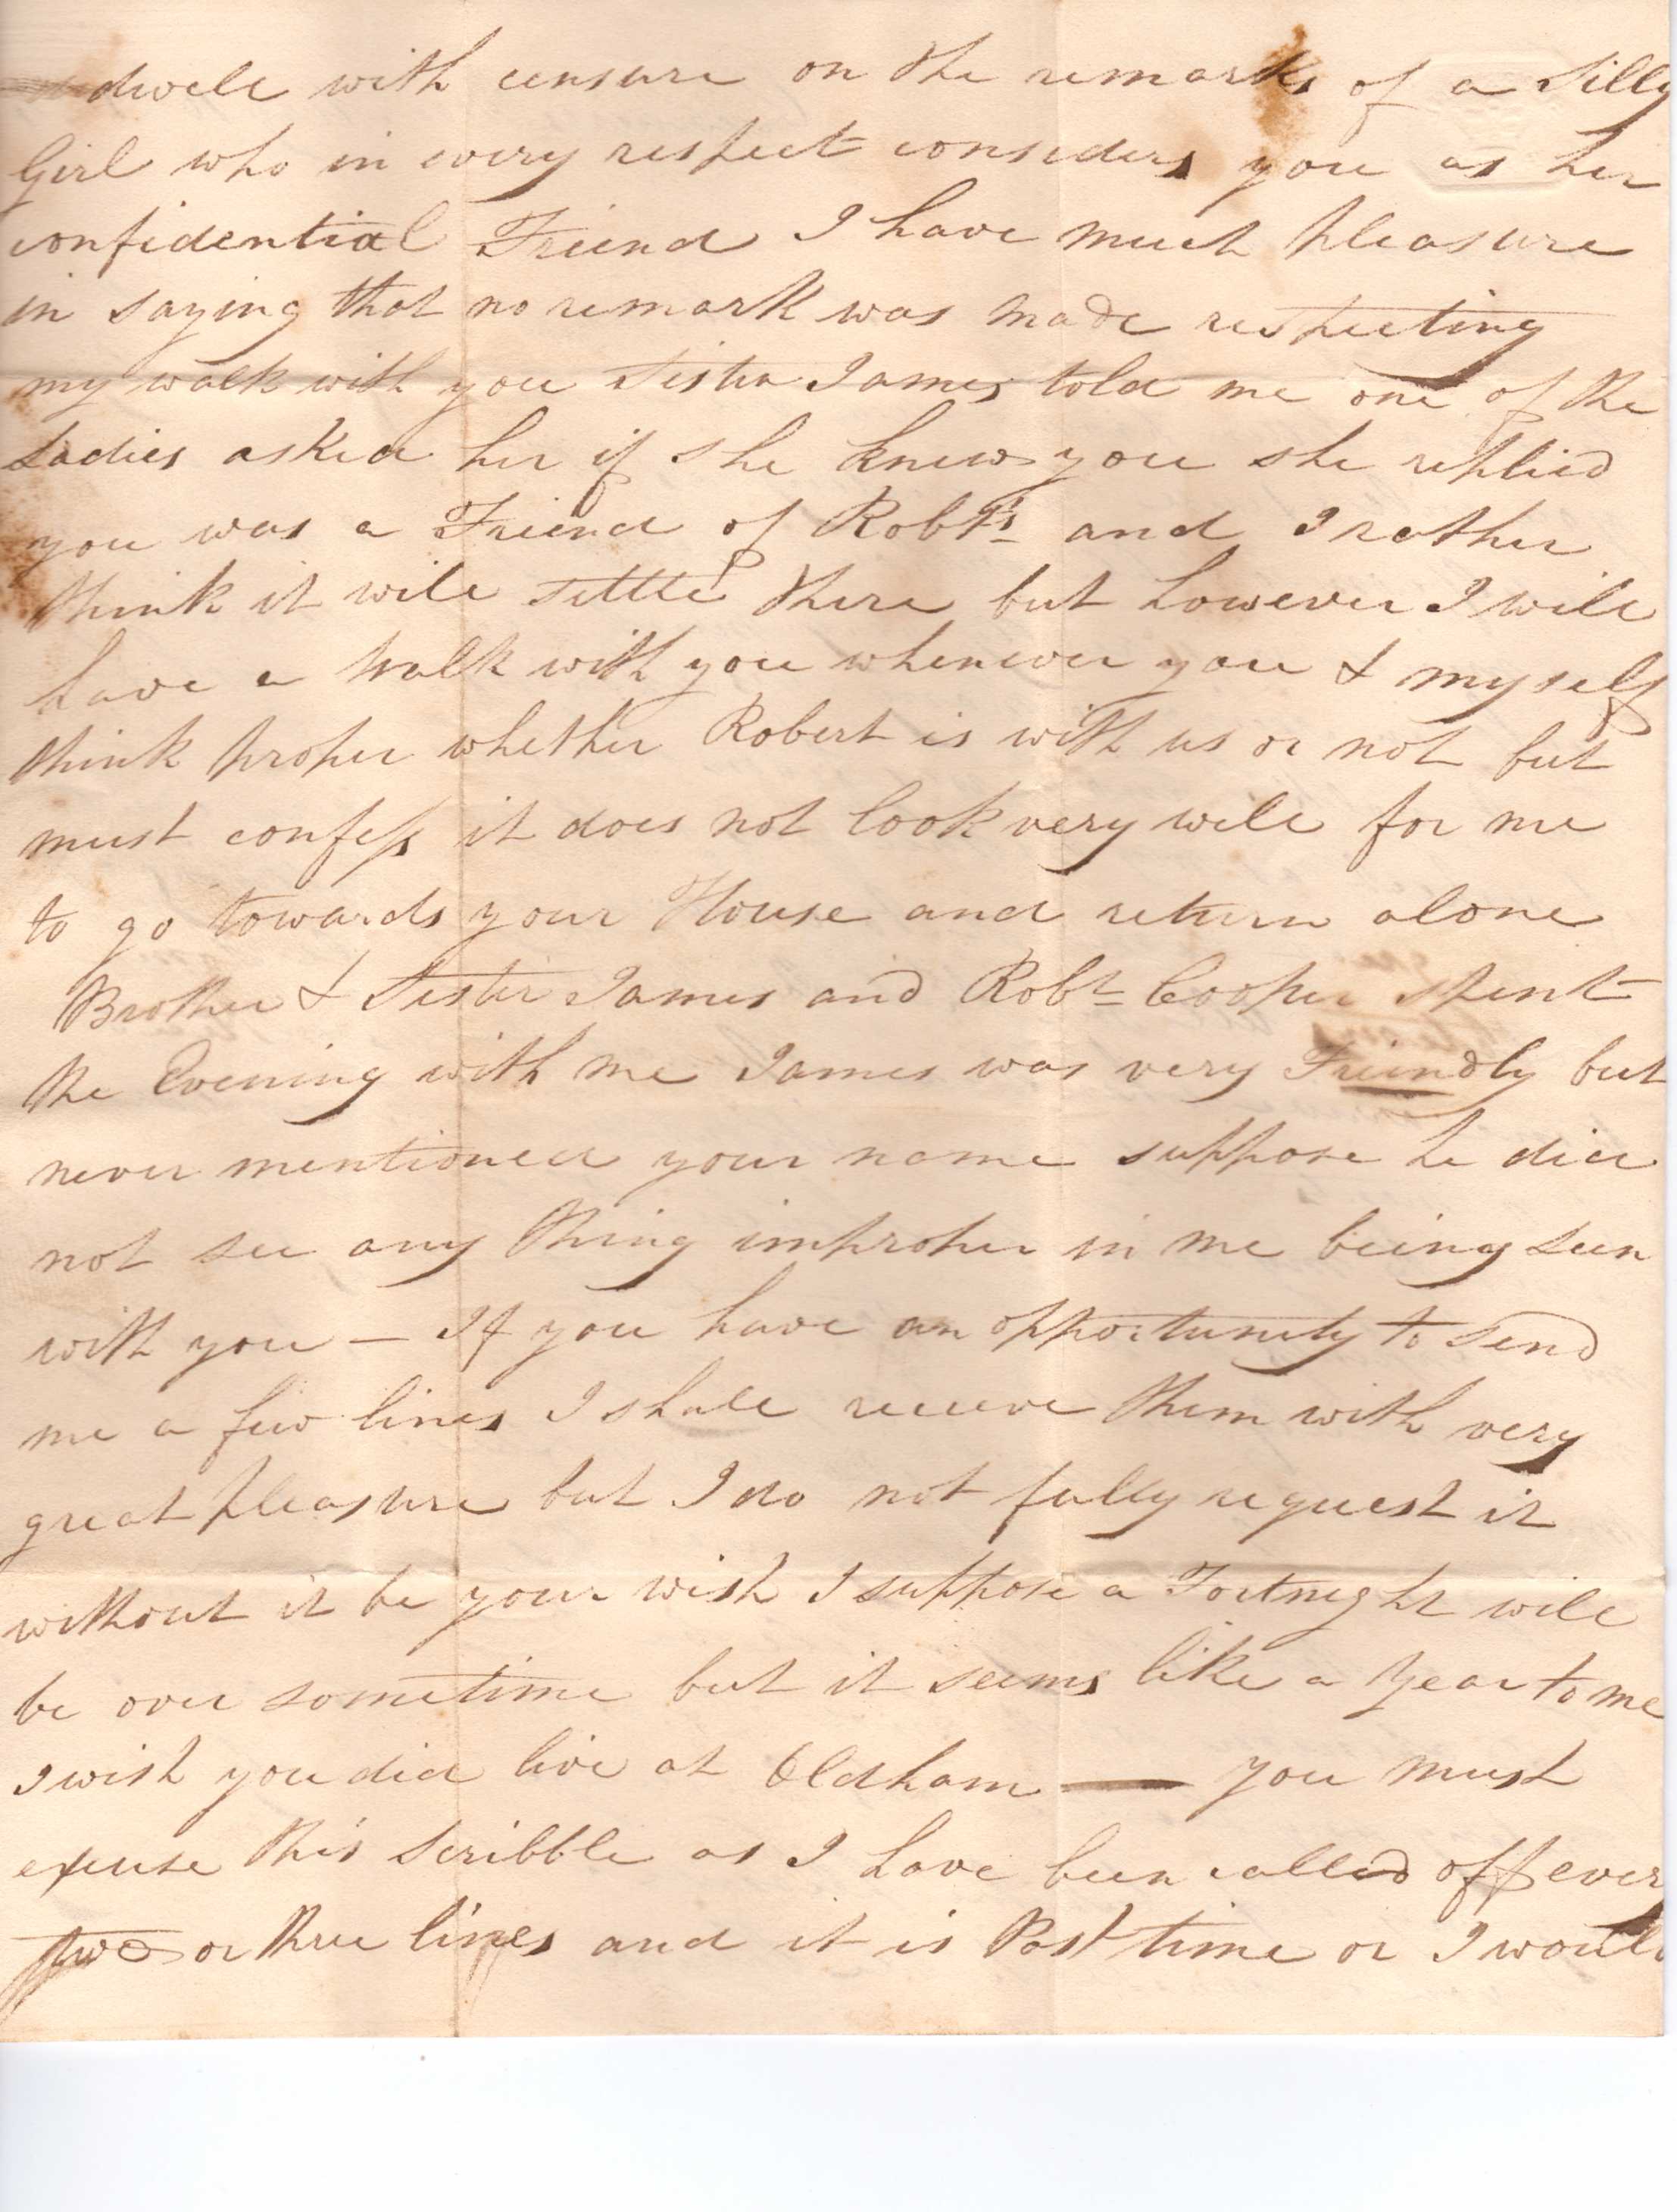 dwell with censure on the remarks of a Silly
Girl who in every respect considers you as her
confidential Friend I have much pleasure
in saying that no remark was made respecting
my walk with you Sister James told me one of the
Ladies asked her if she knew you she replied
you was a Friend of Robt's and I rather
think it will settle there but however I will
have a Walk with you whenever you & myself
think proper whether Robert is with us or not but
must confess it does not look very well for me
to go towards your House and return alone
Brother & Sister James and Robt Cooper spent
the Evening with me James was very Friendly but
never mentioned your name suppose he did
not see any thing improper in me being seen
with you — If you have an opportunity to send
me a few lines I shall receive them with very
great pleasure but I do not fully request it
without it be your wish I suppose a Fortnight will
be over sometime but it seems like a Year to me
I wish you did live at Oldham — you must
excuse this Scribble as I have been called off ever
two or three lines and it is Post time or I would